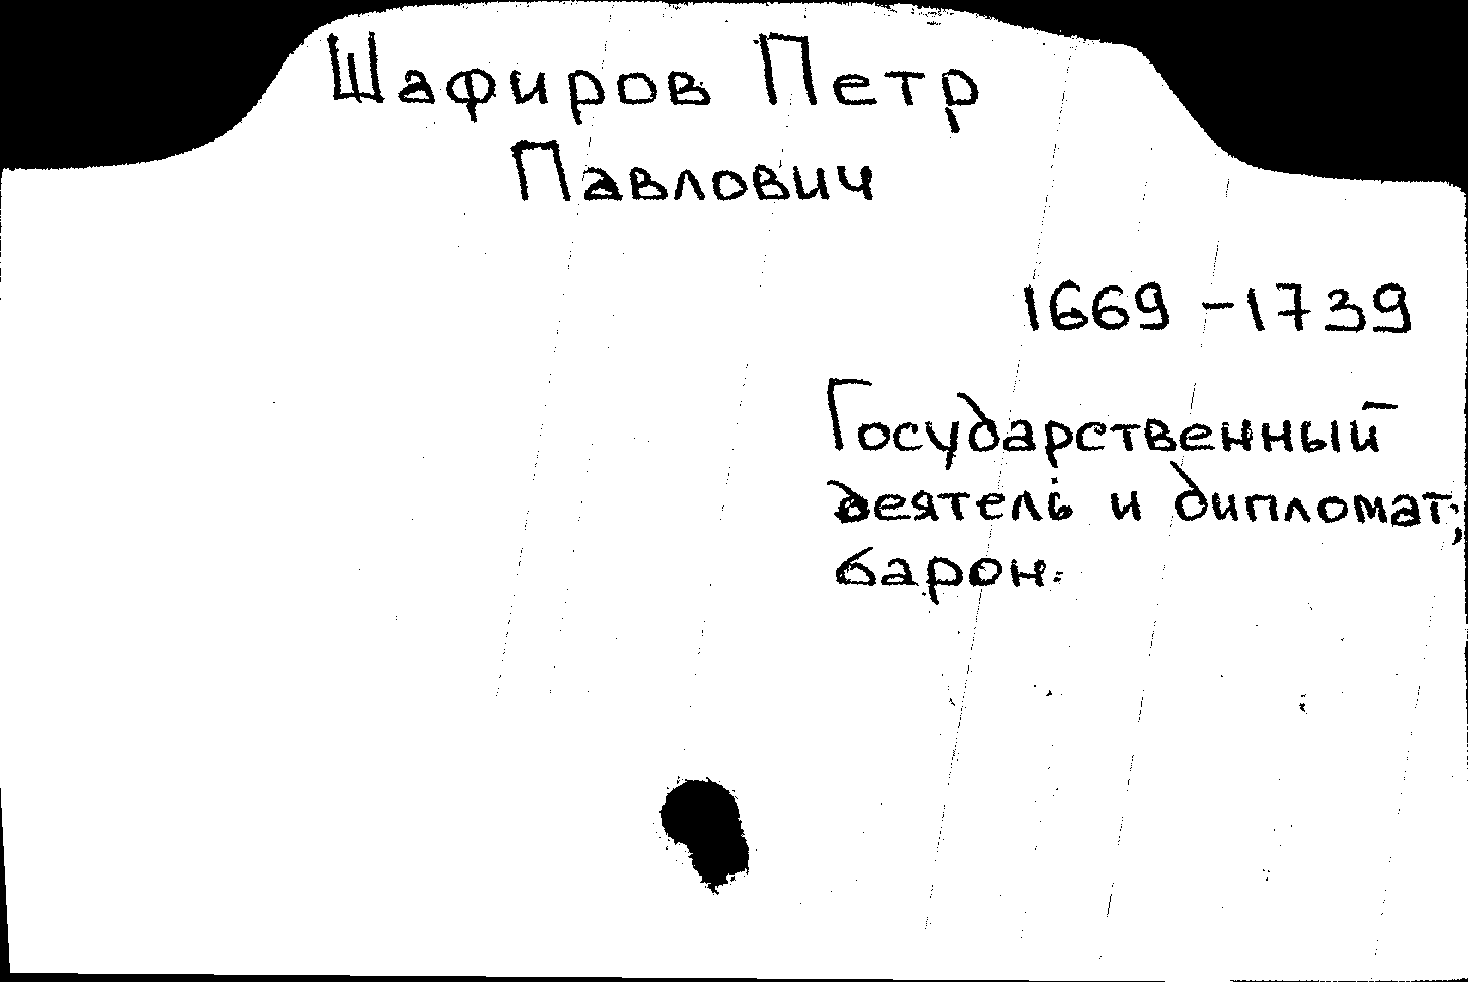 Шафиров Петр
Павлович
1669-1739
Государственный
деятель и дипломат,
барон.